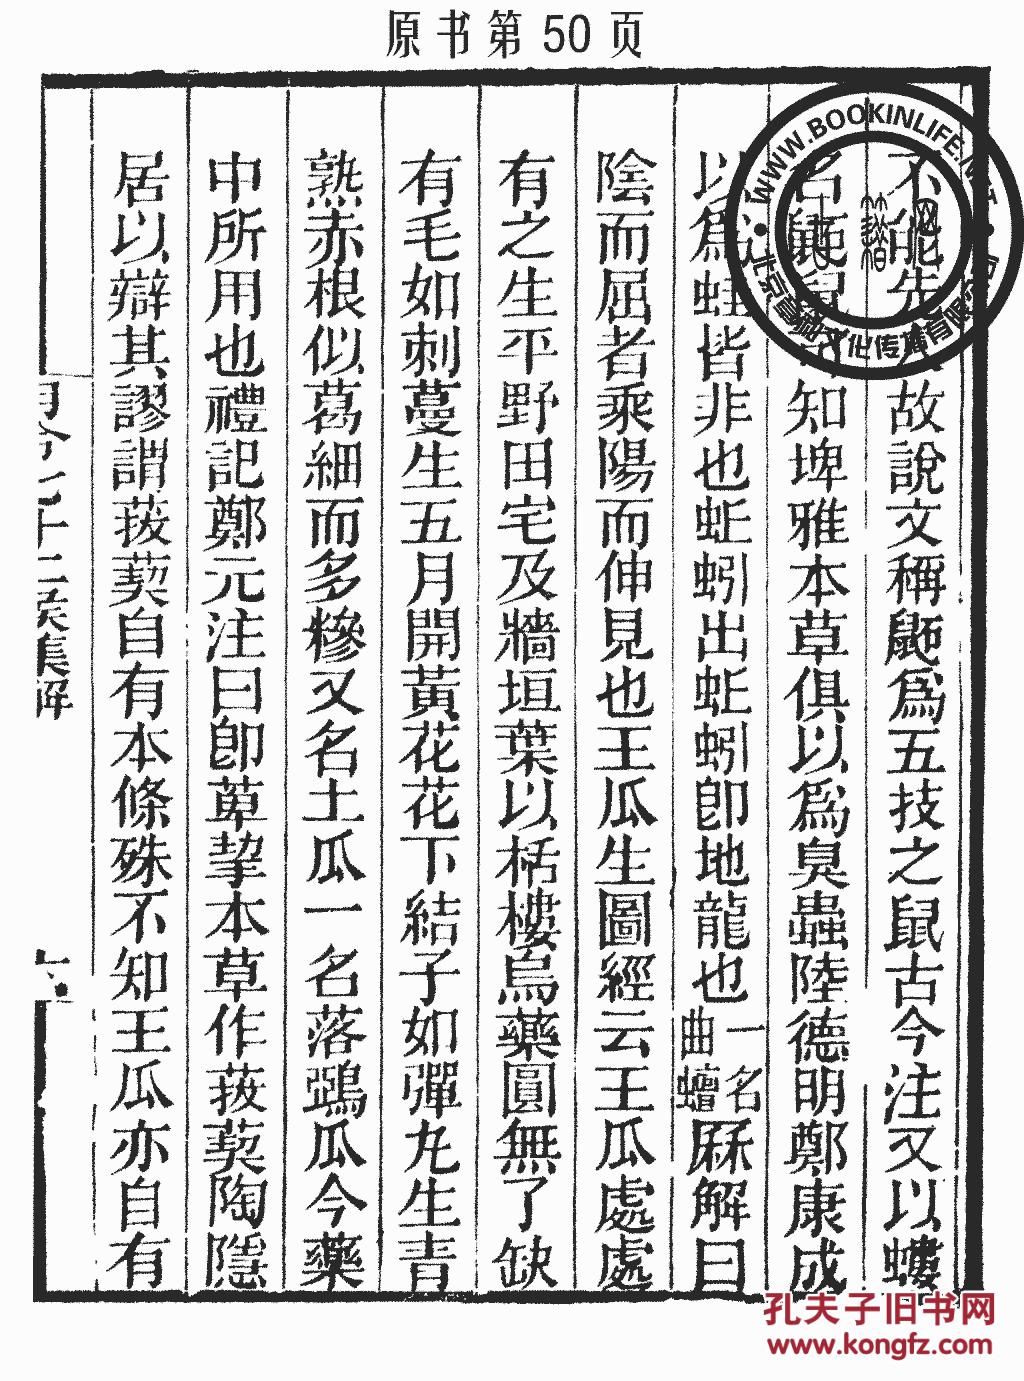 原书第50页
不能先故說文稱鼫爲五技之鼠古今注又以螻
名鼫鼠知埤雅本草俱以爲臭蟲陸德明鄭康成
以爲蛙皆非也蚯蚓出蚯蚓卽地龍也一名曲蟺厤解曰
陰而屈者乘陽而伸見也王瓜生圖經云王瓜處處
有之生平野田宅及牆垣葉以栝樓烏藥圓無了缺
有毛如刺蔓生五月開黃花花下結子如彈丸生青
熟赤根似葛細而多糝又名土瓜一名落鴉瓜今藥
中所用也禮記鄭元注曰卽萆挈本草作菝葜陶隱
居以辯其謬謂菝葜自有本條殊不知王瓜亦自有
月令七十二候集解
WWW.BOOKINLIFE.NET
孔夫子旧书网
www.kongfz.com